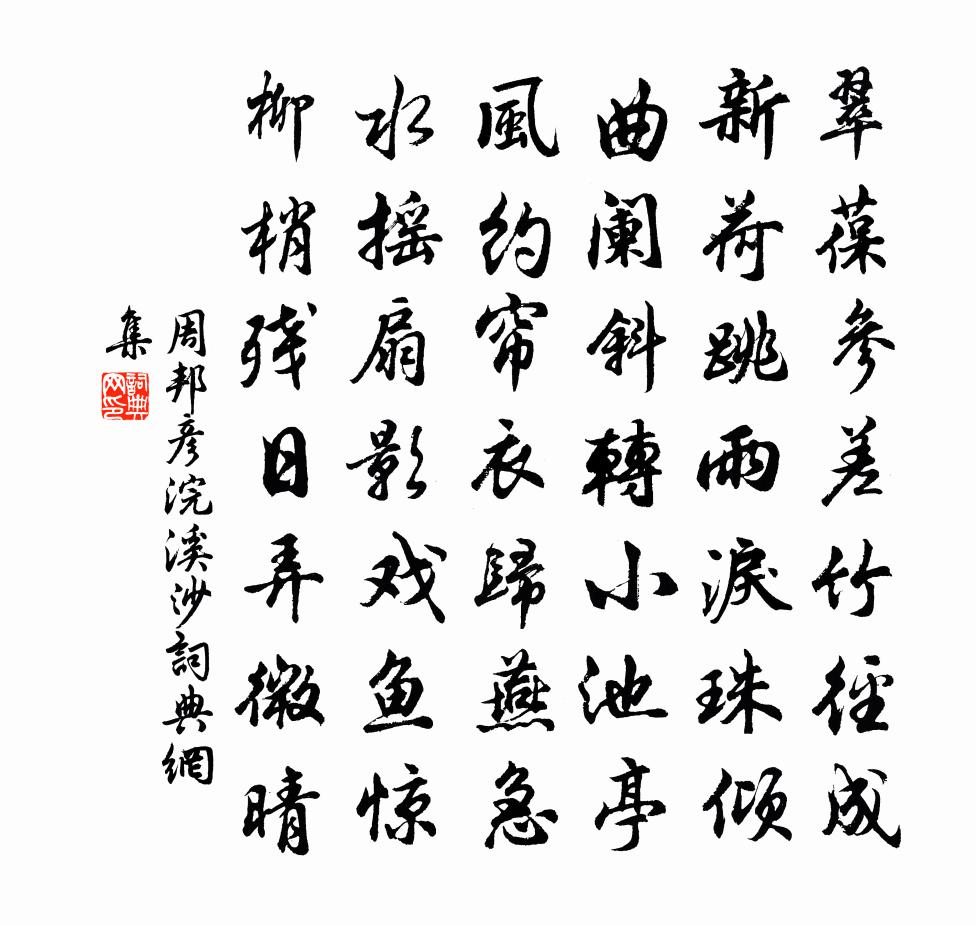 翠葆參差竹徑成
新荷跳雨淚珠傾
曲阑斜轉小池亭
風約帘衣歸燕急
水摇扇影戏鱼惊
柳梢残日弄微晴
周邦彦浣溪沙詞典網
集
詞典网印